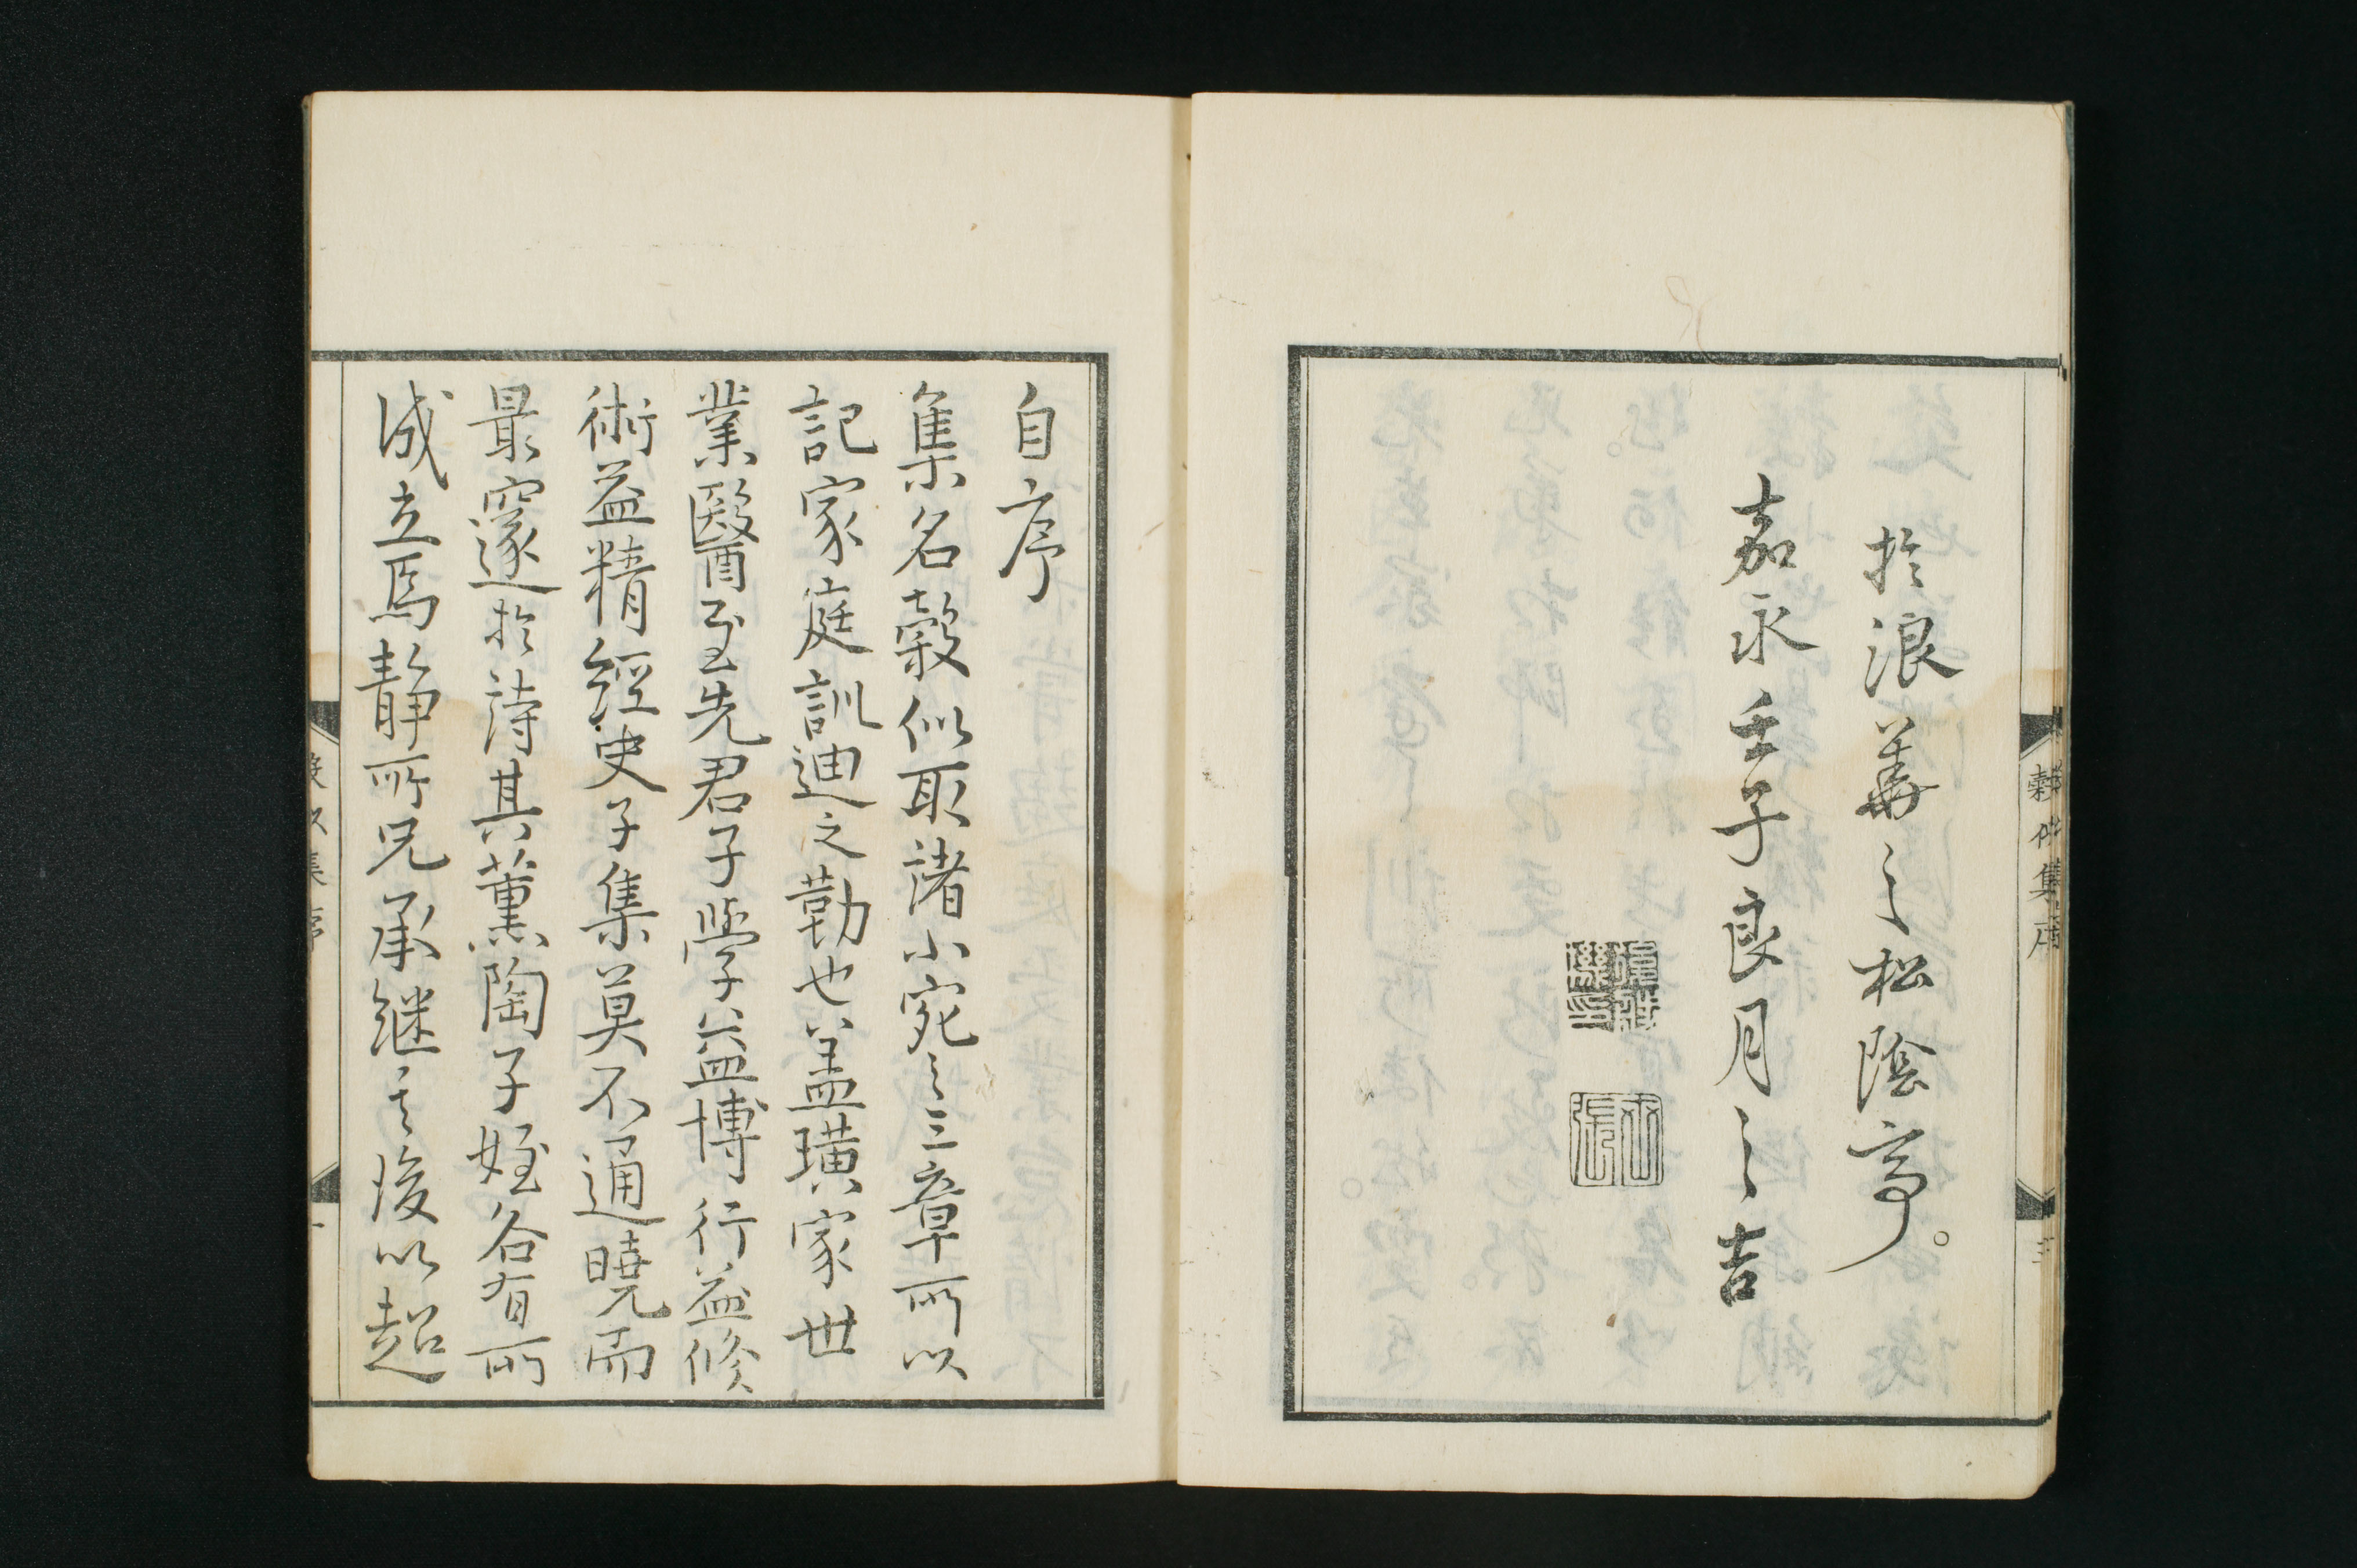 於浪華之松陰亭。
嘉永壬子良月之吉
自序
集名穀似取諸小宛之三章所以
記家庭訓迪之勤也蓋璜家世
業醫至先君子學益博行益修
術益精經史子集莫不通曉而
最邃於詩其薰陶子姪各有所
成立焉靜所兄承继之後以超
穀似集序
三